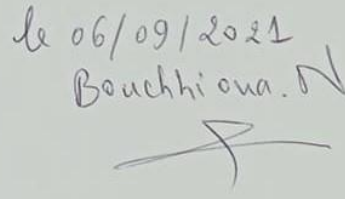 le 06/09/2021
Bouchhioua. N